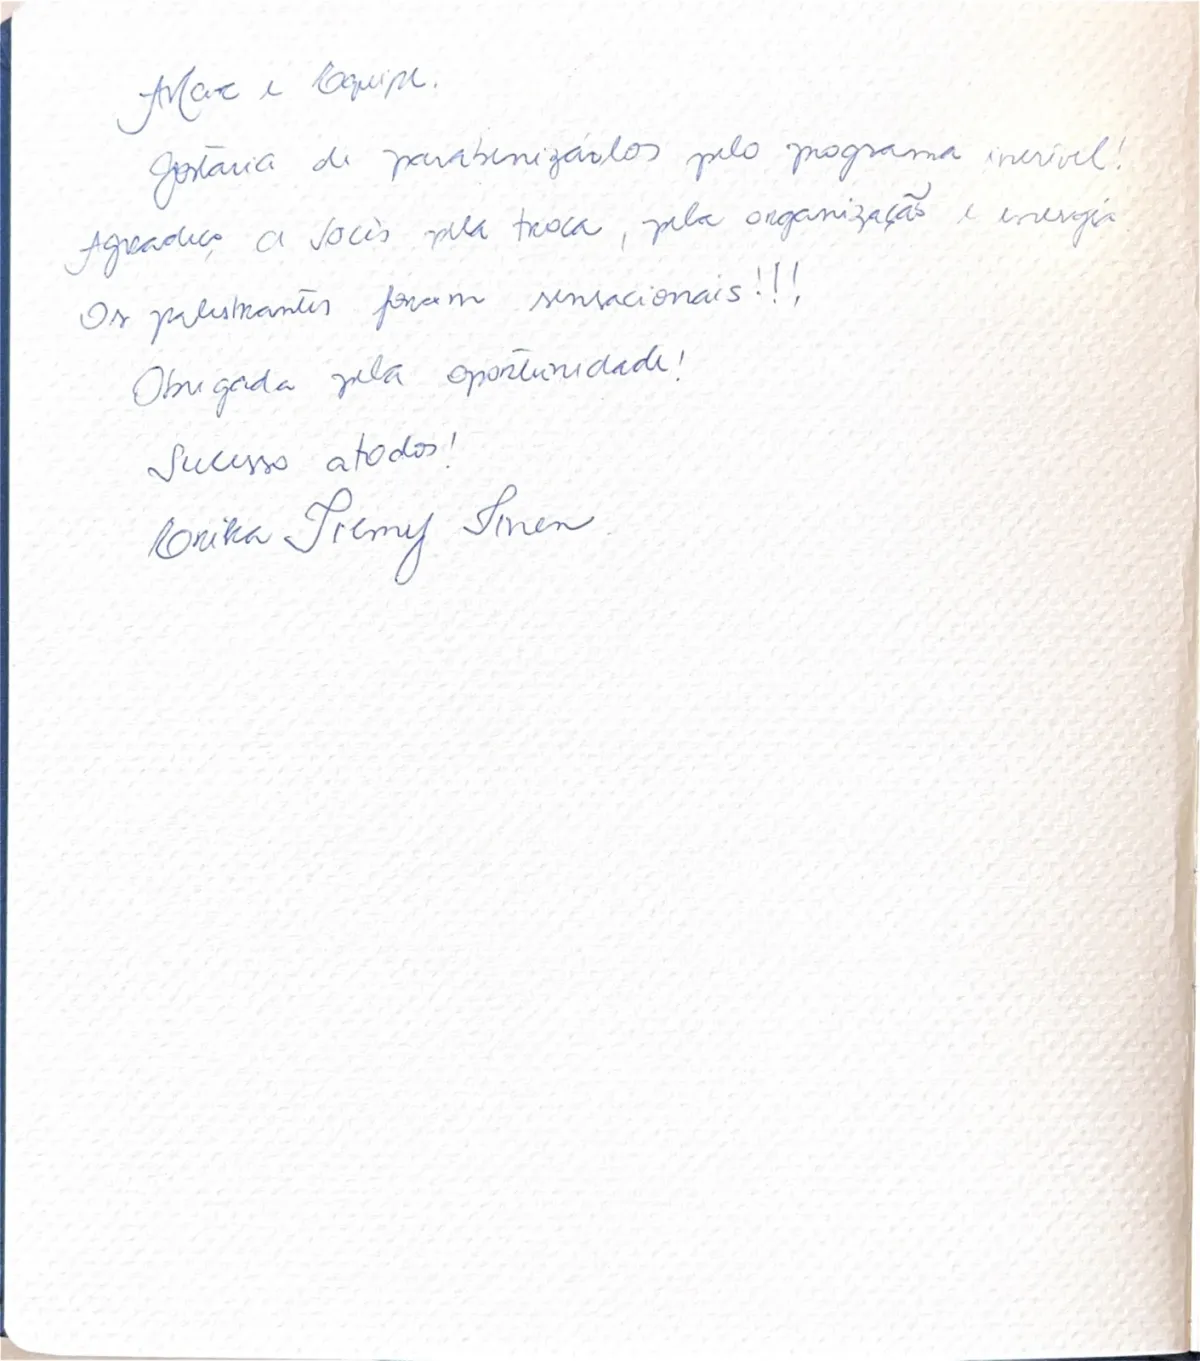 Marc e Equipe.
Gostaria de parabenizá-los pelo programa incrível!
Agradeço a vocês pela troca, pela organização e energia
Os palestrantes foram sensacionais!!!
Obrigada pela oportunidade!
Sucesso a todos!
Erika